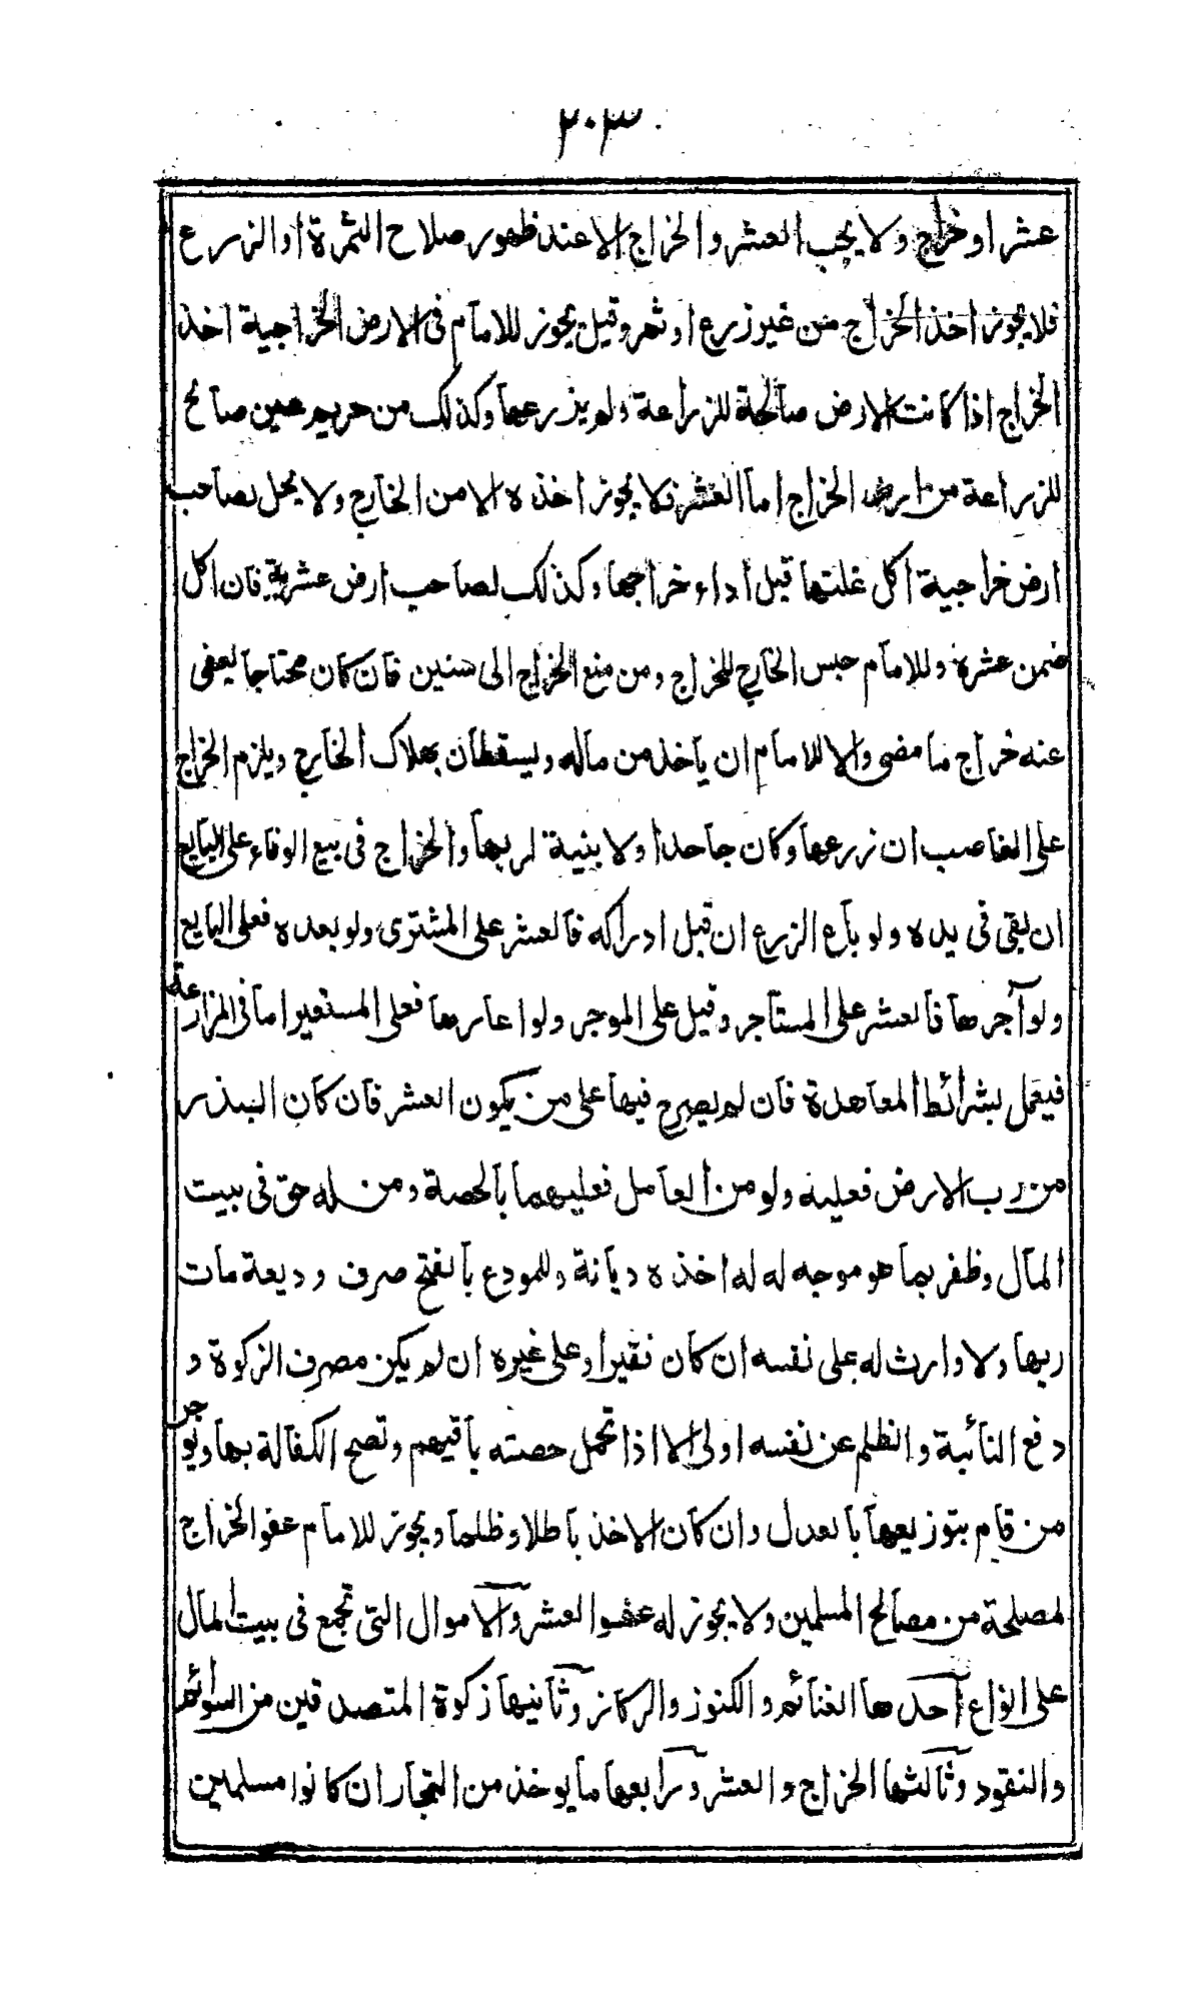 ٢٠٣
عشر او خراج ولا يجب العشر والخراج الا عند ظهور صلاح الثمرة او الزرع
فلا يجوز اخذ الخراج من غير زرع او ثمر وقيل يجوز للامام فى الارض الخراجية اخذ
الخراج اذا كانت الارض صالحة للزراعة ولم يزرعها وكذلك من حريم عين صالح
للزراعة من ارض الخراج اما العشر فلا يجوز اخذه الا من الخارج ولا يحل لصاحب
ارض خراجية اكل غلتها قبل اداء خراجها وكذلك لصاحب ارض عشرية فان اكل
ضمن عشره وللامام حبس الخارج للخراج ومن منع الخراج الى سنين فان كان محتاجا يعفى
عنه خراج ما مضى والا للامام ان ياخذ من ماله ويسقطان بهلاك الخارج ويلزم الخراج
على الغاصب ان زرعها وكان جاحدا ولا بنية لربها والخراج فى بيع الوفاء على البايع
ان بقى فى يده ولو باع الزرع ان قبل ادراكه فالعشر على المشترى ولو بعده فعلى البايع
ولو آجرها فالعشر على المستاجر وقيل على الموجر ولو اعارها فعلى المستعير اما فى المزارعة
فيعمل بشرائط المعاهدة فان لم يصرح فيها على من يكون العشر فان كان البذر
من رب الارض فعليه ولو من العامل فعليهما بالحصة ومن له حق فى بيت
المال وظفر بما هو موجه له له اخذه ديانة وللمودع بالفتح صرف وديعة مات
ربها ولا وارث له على نفسه ان كان فقيرا وعلى غيره ان لم يكن مصرف الزكوة و
دفع النائبة والظلم عن نفسه اولى الا اذا تحمل حصته باقيهم وتصح الكفالة بها ويوجر
من قام بتوزيعها بالعدل وان كان الاخذ باطلا وظلما ويجوز للامام عفو الخراج
لمصلحة من مصالح المسلمين ولا يجوز له عفو العشر والاموال التى تجمع فى بيت المال
على انواع احدها الغنائم والكنوز والركاز وثانيها زكوة المتصدقين من السوائم
والنقود وثالثها الخراج والعشر ورابعها ما يوخذ من التجار ان كانوا مسلمين